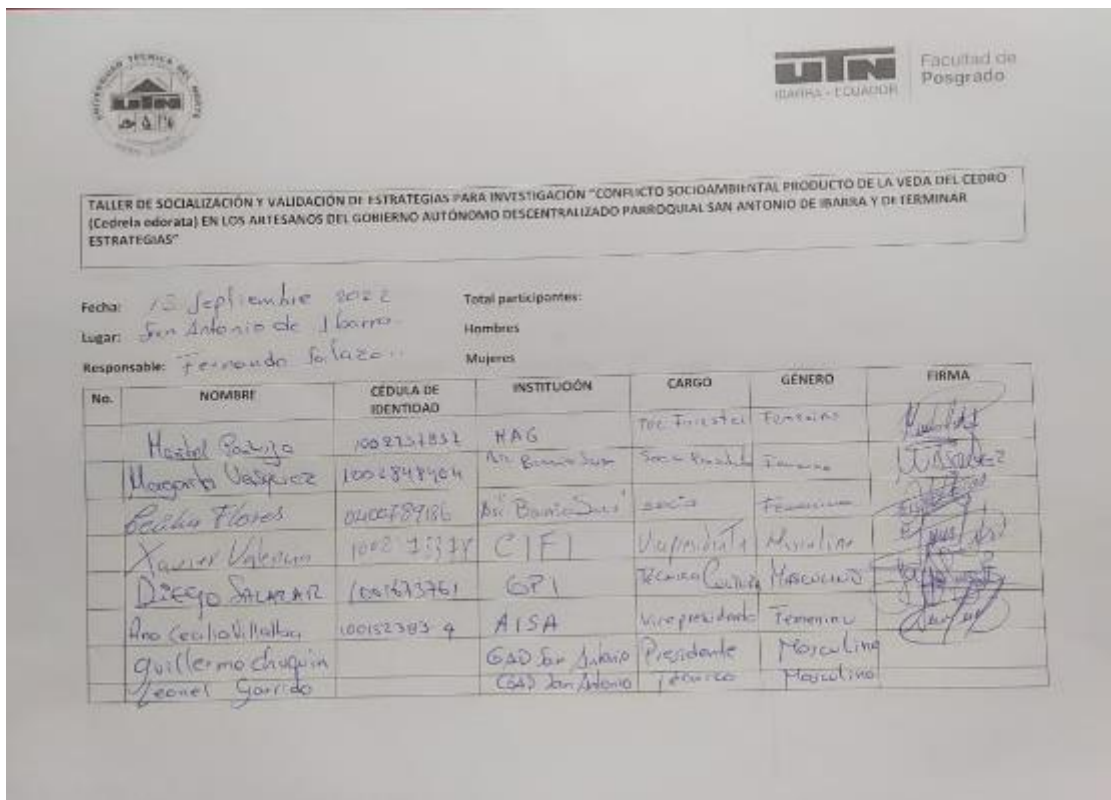 UNIVERSIDAD TECNICA DEL NORTE
UTN
IBARRA - ECUADOR
UTN
IBARRA - ECUADOR
Facultad de
Posgrado
TALLER DE SOCIALIZACIÓN Y VALIDACIÓN DE ESTRATEGIAS PARA INVESTIGACIÓN "CONFLICTO SOCIOAMBIENTAL PRODUCTO DE LA VEDA DEL CEDRO
(Cedrela odorata) EN LOS ARTESANOS DEL GOBIERNO AUTÓNOMO DESCENTRALIZADO PARROQUIAL SAN ANTONIO DE IBARRA Y DETERMINAR
ESTRATEGIAS"
Fecha: 13 Septiembre 2022 Total participantes:
Lugar: San Antonio de Ibarra Hombres
Responsable: Fernando Salazar Mujeres
No. NOMBRE CÉDULA DE IDENTIDAD INSTITUCIÓN CARGO GÉNERO FIRMA
MAG Femenino
Margarita Vasquez Femenino
Cecilia Flores socia Femenino
Xavier Valencia CIFI Vicepresidente Masculino
DIEGO SALAZAR 1001673761 GPI Técnico MASCULINO
Ana Cecilia Villalba 100152383 9 AISA Vicepresidenta Femenino
Guillermo Chuquin GAD San Antonio Presidente Masculino
Leonel Garrido GAD San Antonio Técnico Masculino